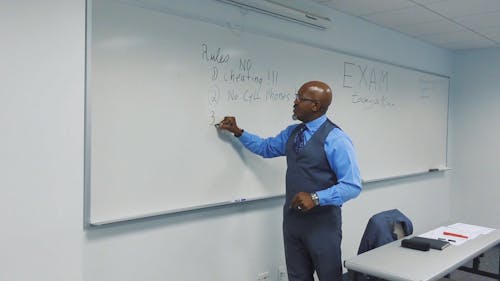 Rules NO
① cheating !!!
② No Cell Phones
3
EXAM